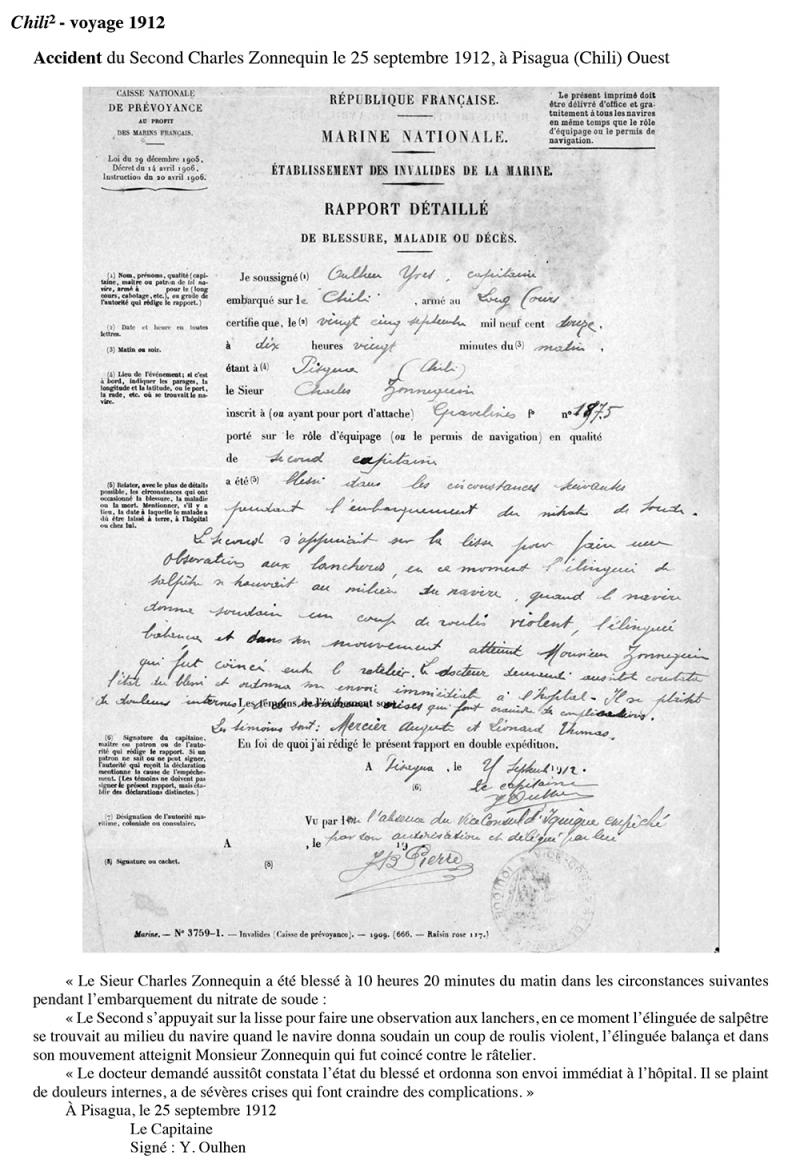 Chili² - voyage 1912
Accident du Second Charles Zonnequin le 25 septembre 1912, à Pisagua (Chili) Ouest
CAISSE NATIONALE
DE PRÉVOYANCE
AU PROFIT
DES MARINS FRANÇAIS.
Loi du 29 décembre 1905.
Décret du 14 avril 1906.
Instruction du 20 avril 1906.
RÉPUBLIQUE FRANÇAISE.
MARINE NATIONALE.
ÉTABLISSEMENT DES INVALIDES DE LA MARINE.
RAPPORT DÉTAILLÉ
DE BLESSURE, MALADIE OU DÉCÈS.
Le présent imprimé doit
être délivré d'office et gra-
tuitement à tous les navires
en même temps que le rôle
d'équipage ou le permis de
navigation.
(1) Nom, prénoms, qualité (capi-
taine, maître ou patron de tel na-
vire, armé à pour le (long
cours, cabotage, etc.), ou grade de
l'autorité qui rédige le rapport.)
(2) Date et heure en toutes
lettres.
(3) Matin ou soir.
(4) Lieu de l'événement; si c'est
à bord, indiquer les parages, la
longitude et la latitude, ou le port,
la rade, etc. où se trouvait le na-
vire.
(5) Relater, avec le plus de détails
possible, les circonstances qui ont
occasionné la blessure, la maladie
ou la mort. Mentionner, s'il y a
lieu, la date à laquelle le malade a
dû être laissé à terre, à l'hôpital
ou chez lui.
(6) Signature du capitaine,
maître ou patron ou de l'auto-
rité qui rédige le rapport. Si un
patron ne sait ou ne peut signer,
l'autorité qui reçoit la déclaration
mentionne la cause de l'empêche-
ment. (Les témoins ne doivent pas
signer le présent rapport, mais éta-
blir des déclarations distinctes.)
(7) Désignation de l'autorité ma-
ritime, coloniale ou consulaire.
(8) Signature ou cachet.
Je soussigné (1) Oulhen Yves, capitaine
embarqué sur le Chili, armé au Long Cours
certifie que, le (2) vingt cinq septembre mil neuf cent douze,
à dix heures vingt minutes du (3) matin,
étant à (4) Pisagua (Chili)
le Sieur Charles Zonnequin
inscrit à (ou ayant pour port d'attache) Gravelines f° n° 1875
porté sur le rôle d'équipage (ou le permis de navigation) en qualité
de second capitaine
a été (5) blessé dans les circonstances suivantes
pendant l'embarquement du nitrate de soude.
Le second s'appuyait sur la lisse pour faire une
observation aux lancheros, en ce moment l'élinguée de
salpêtre se trouvait au milieu du navire, quand le navire
donna soudain un coup de roulis violent, l'élinguée
balança et dans son mouvement atteint Monsieur Zonnequin
qui fut coincé contre le ratelier. Le docteur demandé aussitôt constata
l'état du blessé et ordonna son envoi immédiat à l'hôpital. Il se plaint
de douleurs internes, crises qui font craindre des complications.
Les témoins de l'événement sont
Les témoins sont : Mercier August et Léonard Thomas.
En foi de quoi j'ai rédigé le présent rapport en double expédition.
A Pisagua, le 25 Septembre 1912.
(6) Le capitaine
Y Oulhen
Vu par l'absence du Vice Consul d'Iquique empêché
par son autorisation et délégué par lui
A , le 19
(8) JB Pierre
Marine. — N° 3759-1. — Invalides (Caisse de prévoyance). — 1909. (666. — Raisin rose 117.)
« Le Sieur Charles Zonnequin a été blessé à 10 heures 20 minutes du matin dans les circonstances suivantes
pendant l'embarquement du nitrate de soude :
« Le Second s'appuyait sur la lisse pour faire une observation aux lanchers, en ce moment l'élinguée de salpêtre
se trouvait au milieu du navire quand le navire donna soudain un coup de roulis violent, l'élinguée balança et dans
son mouvement atteignit Monsieur Zonnequin qui fut coincé contre le râtelier.
« Le docteur demandé aussitôt constata l'état du blessé et ordonna son envoi immédiat à l'hôpital. Il se plaint
de douleurs internes, a de sévères crises qui font craindre des complications. »
À Pisagua, le 25 septembre 1912
Le Capitaine
Signé : Y. Oulhen